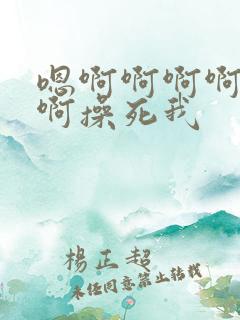 嗯啊啊啊啊
啊操死我
楊正超
未任同意禁止转载